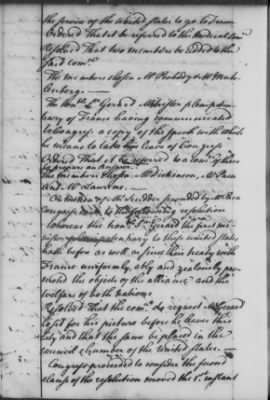 the service of the United States to go to France
Ordered That it be referred to the Medical Comee
Resolved That two members be added to the
said comee
The members chosen Mr Peabody & Mr Muh-
lenberg —
The Honble Sr Gerard Minister plenipoten-
tiary of France having communicated
to Congress a copy of the speech with which
he means to take his leave of Congress
Ordered That it be referred to a comee of three
to prepare an answer
the members chosen Mr Dickinson, Mr Paca
and Mr Laurens.
On motion of seconded by
Congress the following resolution
Whereas the honble Sr Gerard the first mi-
nister plenipotentiary to these united States,
hath before as well as since their treaty with
France uniformly, ably and zealously pro-
moted the objects of the alliance and the
welfare of both nations
Resolved That the come request Mr Gerard
to sit for his picture before he leaves this
City and that the same be placed in the
council chamber of the United States —
Congress proceeded to consider the second
clause of the resolution moved the 1st instant